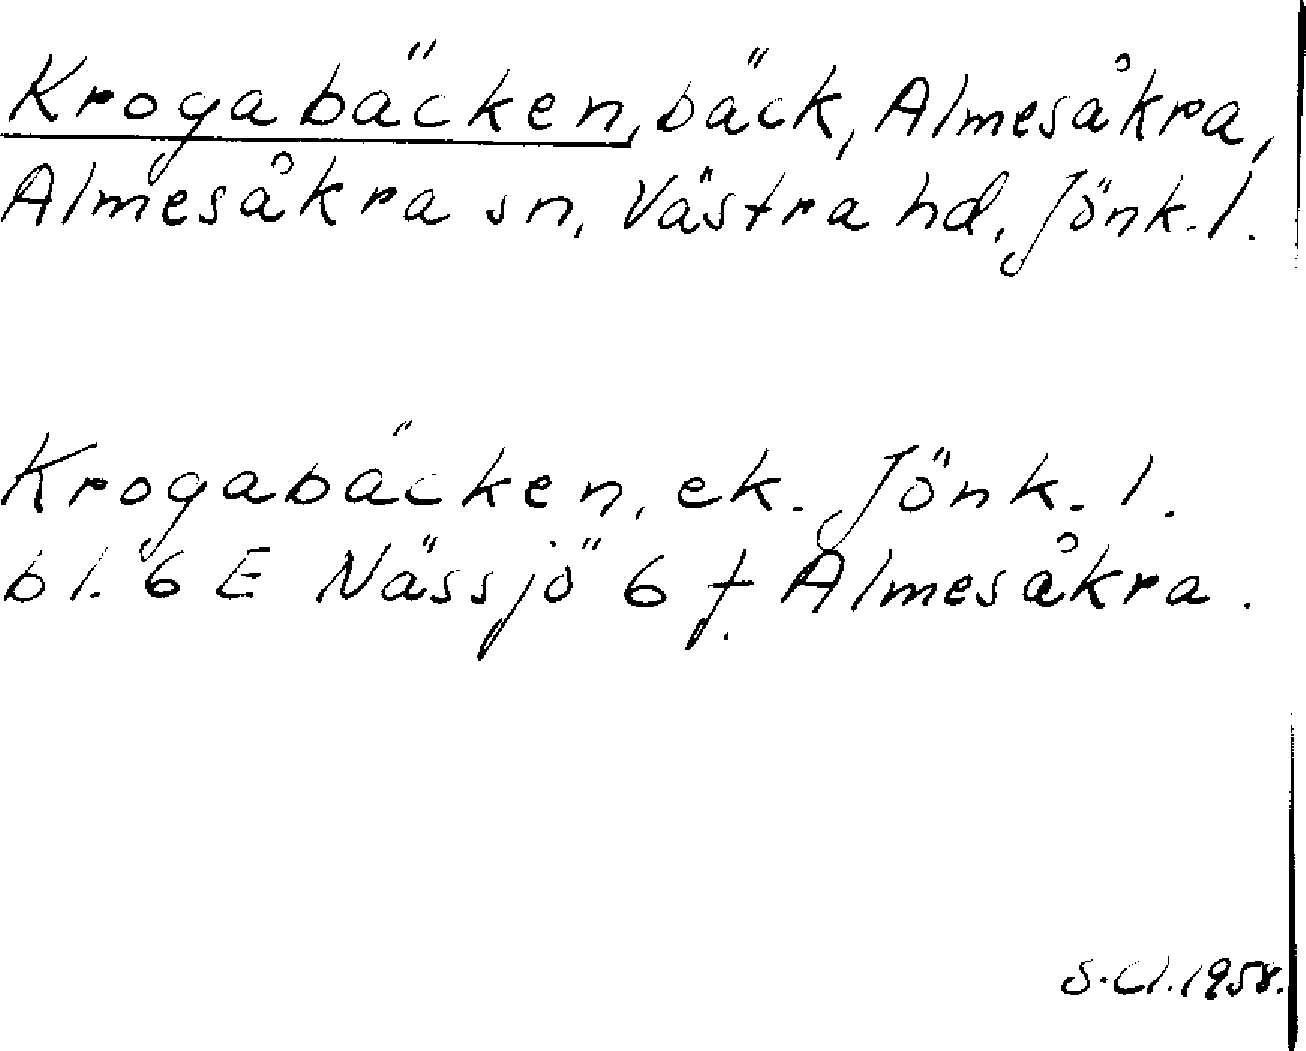 Krogabäcken, bäck, Almesåkra,
Almesåkra sn, Västra hd, Jönk. l.
Krogabäcken, ek. Jönk. l.
bl. 6 E Nässjö 6 f. Almesåkra.
S. Cl. 1958.